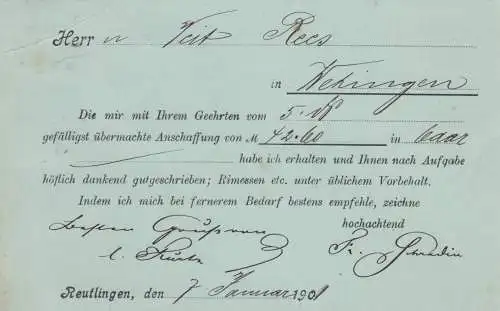 Herrn Veit Rees
in Wehingen
Die mir mit Ihrem Geehrten vom 5. ds
gefälligst übermachte Anschaffung von M 42.60 in baar
habe ich erhalten und Ihnen nach Aufgabe
höflich dankend gutgeschrieben; Rimessen etc. unter üblichem Vorbehalt.
Indem ich mich bei fernerem Bedarf bestens empfehle, zeichne
hochachtend
besten Gruss von
Fr.
Reutlingen, den 7 Januar 1901